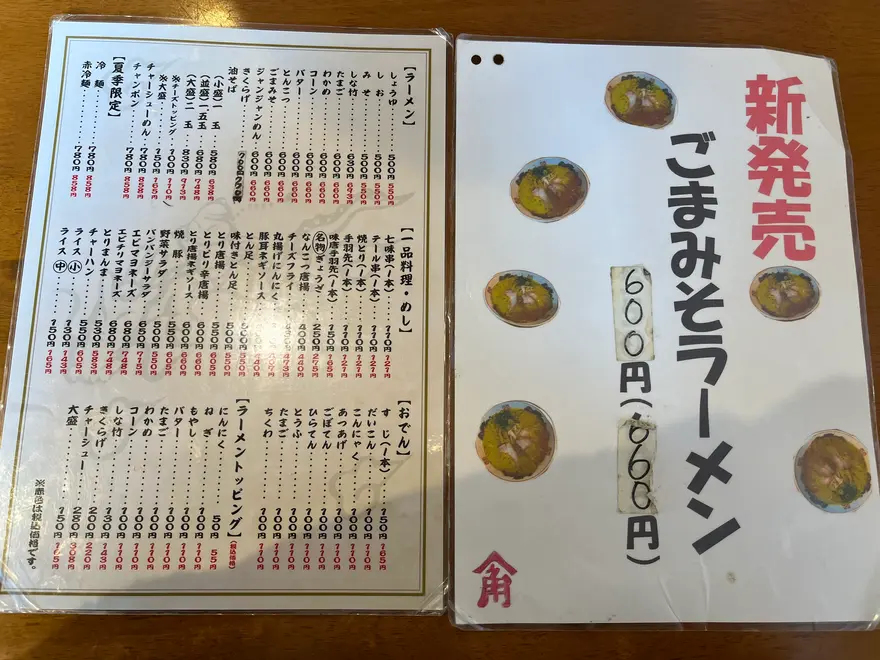 新発売
ごまみそラーメン
600円(660円)
角
【ラーメン】
しょうゆ……500円 550円
しお……500円 550円
みそ……500円 550円
しな竹
たまご……600円 660円
わかめ……600円 660円
コーン……600円 660円
バター……600円 660円
とんこつ……600円 660円
ごまみそ……600円 660円
ジャンジャンめん……600円 660円
きくらげ
油そば
(小盛)一玉 580円 638円
(並盛)一.五玉 680円 748円
(大盛)二玉 830円 913円
※チーズトッピング 100円 110円
※大盛……150円 165円
チャーシューめん 780円 858円
チャンポン……780円 858円
【夏季限定】
冷麺……780円 858円
赤冷麺……780円 858円
【一品料理・めし】
七味串(1本)……110円 121円
テール串(1本)……110円 121円
焼とり(1本)……110円 121円
手羽先(1本)……110円 121円
味唐手羽先(1本)……150円 165円
名物ぎょうざ……250円 275円
なんこつ唐揚……400円 440円
チーズフライ……430円 473円
丸揚げにんにく
豚耳ネギソース
とん足……500円 550円
味付きとん足……500円 550円
とり唐揚……550円 605円
とりピリ辛唐揚……600円 660円
とり唐揚ネギソース……600円 660円
焼豚……550円 605円
野菜サラダ……500円 550円
バンバンジーサラダ……650円 715円
エビマヨネーズ……680円 748円
エビチリマヨネーズ……680円 748円
とりまんま……530円 583円
チャーハン……550円 605円
ライス(小)……130円 143円
ライス(中)……150円 165円
【おでん】
すじ(1本)……150円 165円
だいこん……100円 110円
こんにゃく……100円 110円
あつあげ……100円 110円
ごぼてん……100円 110円
ひらてん……100円 110円
とうふ……100円 110円
たまご……100円 110円
ちくわ……100円 110円
【ラーメントッピング】(税込価格)
にんにく……50円 55円
ねぎ……100円 110円
もやし……100円 110円
バター……100円 110円
たまご……100円 110円
わかめ……100円 110円
コーン……100円 110円
しな竹……130円 143円
きくらげ……200円 220円
チャーシュー……280円 308円
大盛……150円 165円
※赤色は税込価格です。